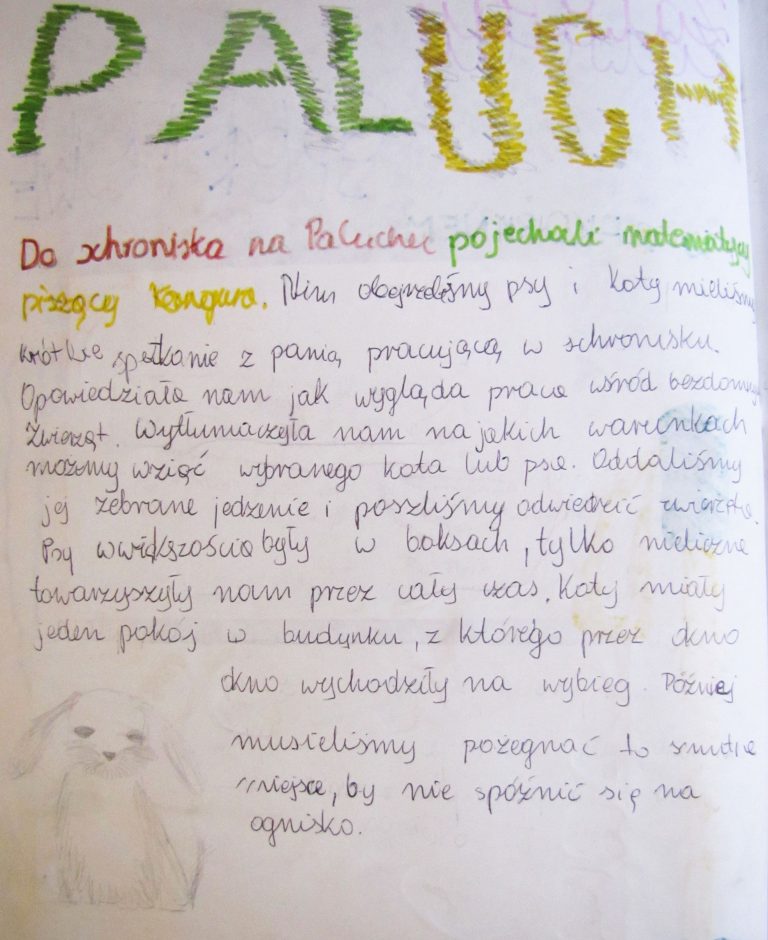 PALUCH
Do schroniska na Paluchu pojechali matematycy
piszący Kangura. Nim obejrzeliśmy psy i koty mieliśmy
krótkie spotkanie z panią pracującą w schronisku.
Opowiedziała nam jak wygląda praca wśród bezdomnych
zwierząt. Wytłumaczyła nam na jakich warunkach
możmy wziąć wybranego kota lub psa. Oddaliśmy
jej zebrane jedzenie i poszliśmy odwiedzić zwierzęta.
Psy w większościo były w boksach, tylko nieliczne
towarzyszyły nam przez cały czas. Koty miały
jeden pokój w budynku, z którego przez okno
okno wychodziły na wybieg. Później
musieliśmy pożegnać to smutne
miejsce, by nie spóźnić się na
ognisko.